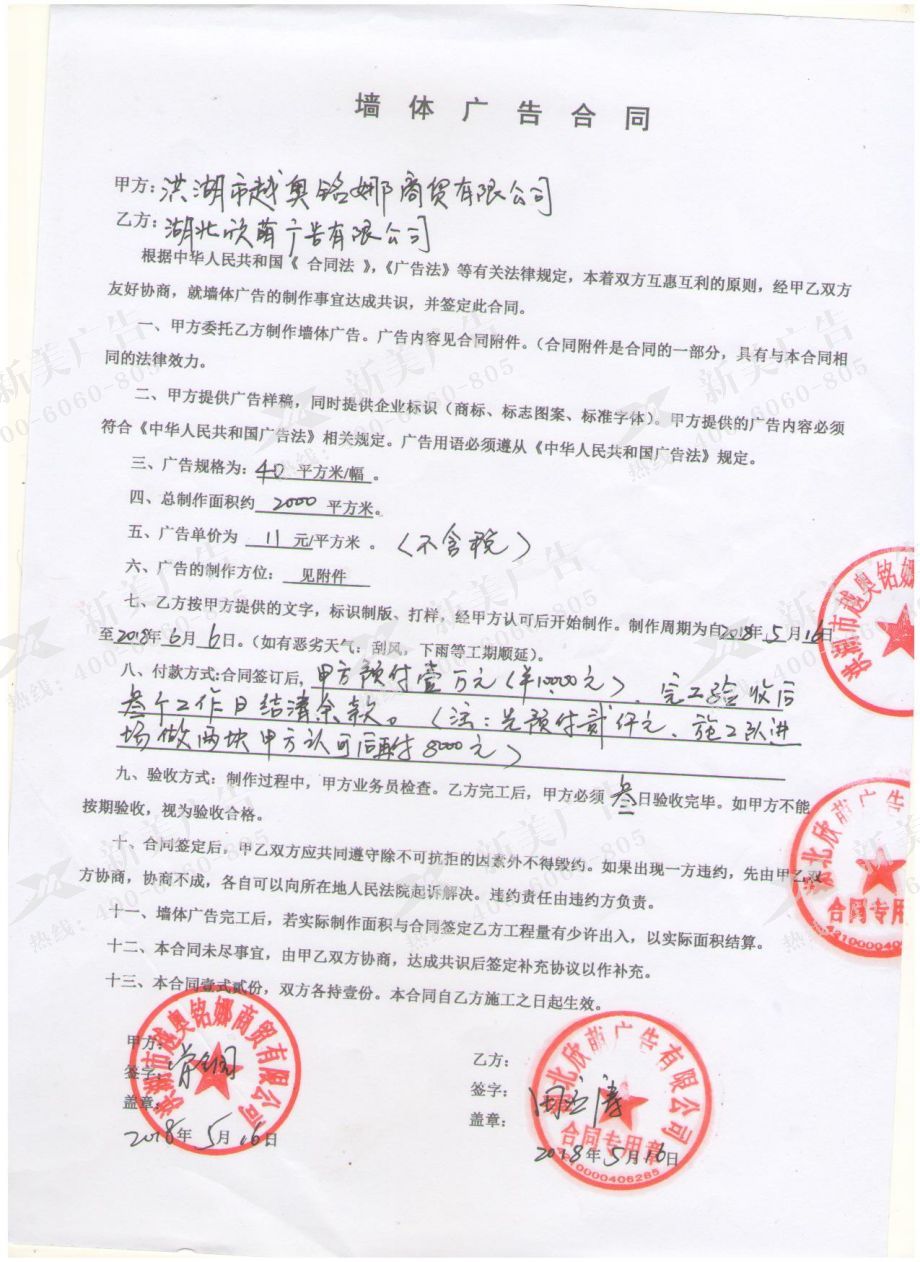 墙体广告合同
甲方:洪湖市越奥铭娜商贸有限公司
乙方:湖北欣萌广告有限公司
根据中华人民共和国《 合同法 》,《广告法》等有关法律规定,本着双方互惠互利的原则,经甲乙双方
友好协商,就墙体广告的制作事宜达成共识,并签定此合同。
一、甲方委托乙方制作墙体广告。广告内容见合同附件。(合同附件是合同的一部分,具有与本合同相
同的法律效力。
二、甲方提供广告样稿,同时提供企业标识(商标、标志图案、标准字体)。甲方提供的广告内容必须
符合《中华人民共和国广告法》相关规定。广告用语必须遵从《中华人民共和国广告法》规定。
三、广告规格为: 40 平方米/幅 。
四、总制作面积约 2000 平方米。
五、广告单价为 11 元/平方米 。(不含税)
六、广告的制作方位: 见附件
七、乙方按甲方提供的文字,标识制版、打样,经甲方认可后开始制作。制作周期为自2018年5月16日
至2018年6月6日。(如有恶劣天气:刮风,下雨等工期顺延)。
八、付款方式:合同签订后,甲方预付壹万元(¥10000元)、完工验收后
叁个工作日结清余款。(注:先预付贰仟元、施工队进
场做两块甲方认可后再付8000元)
九、验收方式:制作过程中,甲方业务员检查。乙方完工后,甲方必须 叁 日验收完毕。如甲方不能
按期验收,视为验收合格。
十、合同签定后,甲乙双方应共同遵守除不可抗拒的因素外不得毁约。如果出现一方违约,先由甲乙双
方协商,协商不成,各自可以向所在地人民法院起诉解决。违约责任由违约方负责。
十一、墙体广告完工后,若实际制作面积与合同签定乙方工程量有少许出入,以实际面积结算。
十二、本合同未尽事宜,由甲乙双方协商,达成共识后签定补充协议以作补充。
十三、本合同壹式贰份,双方各持壹份。本合同自乙方施工之日起生效。
甲方:
签字:
盖章:
2018年5月16日
乙方:
签字:
盖章:
2018年5月16日
洪湖市越奥铭娜商贸有限公司
湖北欣萌广告有限公司
合同专用章
10000406265
洪湖市越奥铭娜
湖北欣萌广告
合同专用
新美广告
热线:400-6060-805